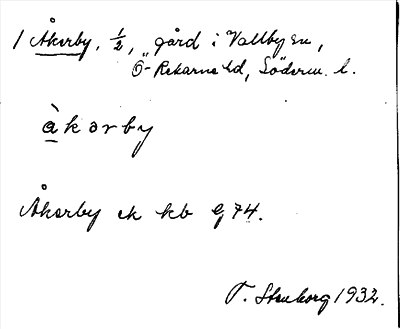 1 Åkerby, 1/2, gård i Vallby sn,
Ö-Rekarne hd, Söderm. l.
åkərby
Åkerby ek kb g 74.
T. Stenborg 1932.